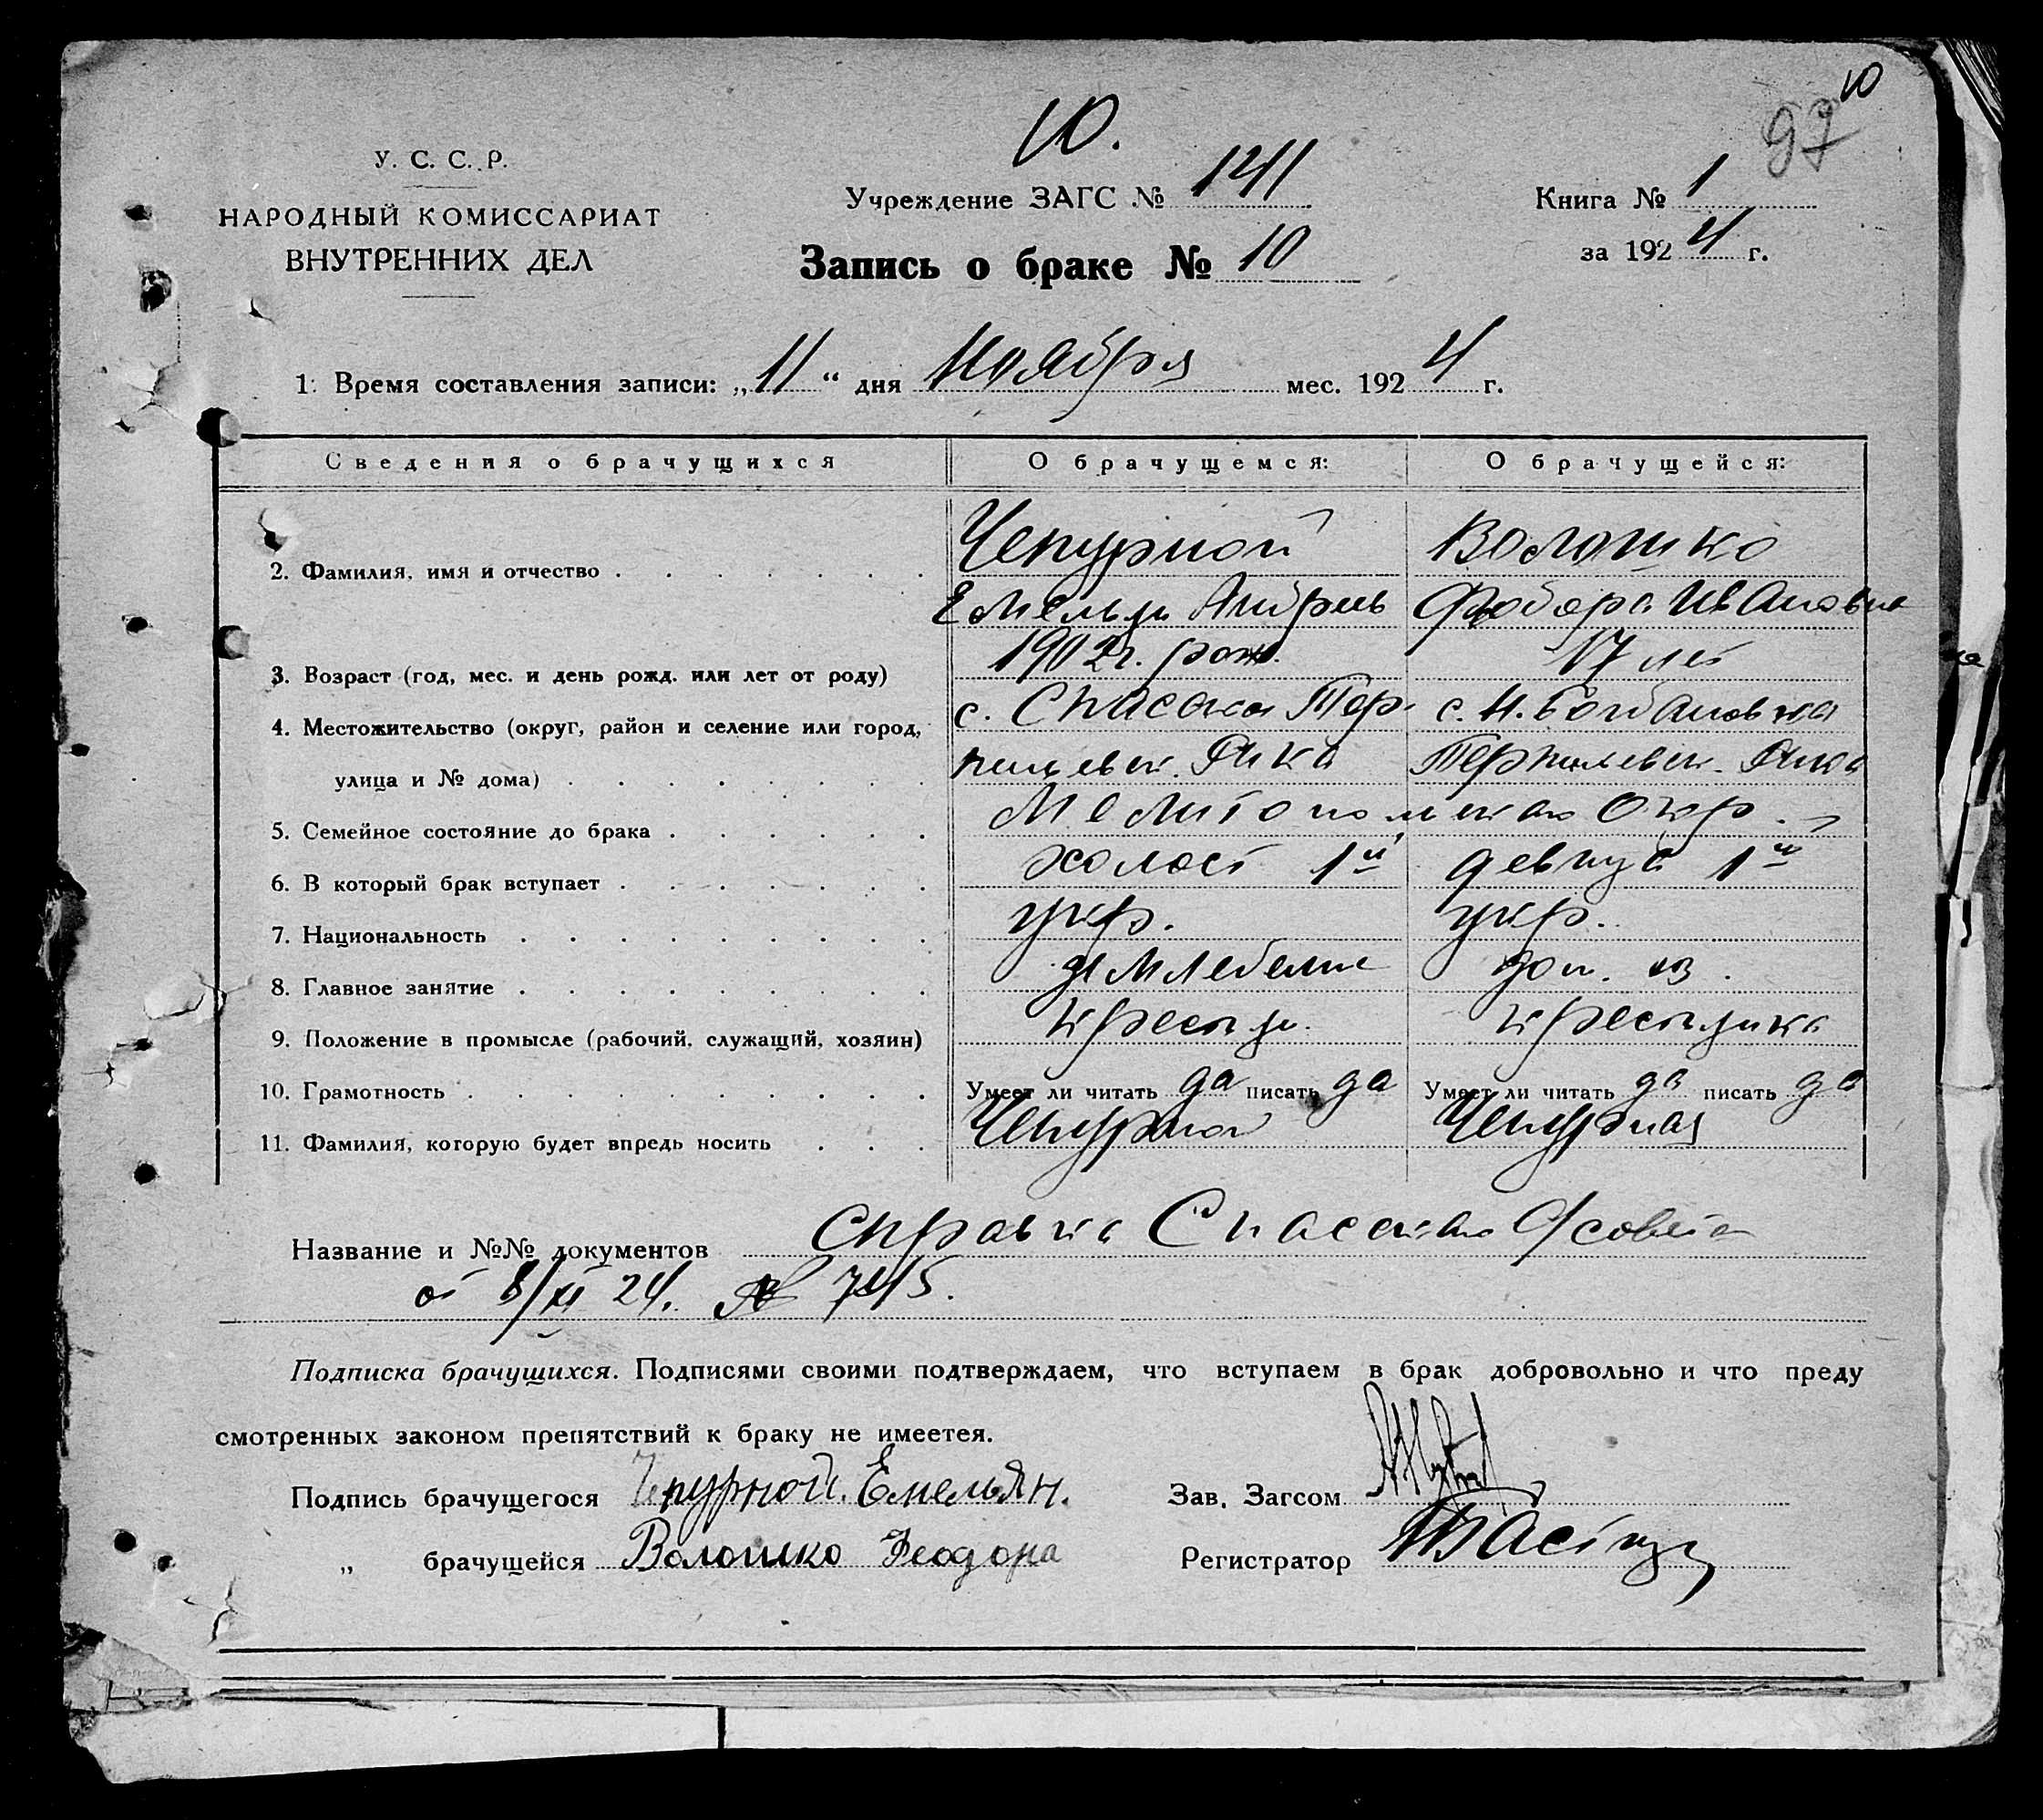 10.
10
97
У. С. С. Р.
НАРОДНЫЙ КОМИССАРИАТ
ВНУТРЕННИХ ДЕЛ
Учреждение ЗАГС № 141
Запись о браке № 10
Книга № 1
за 1924 г.
1. Время составления записи: „11“ дня Ноября мес. 1924 г.
Сведения о брачущихся О брачущемся: О брачущейся:
Чепурной Волошко
2. Фамилия, имя и отчество
Емельян Андреев Федора Ивановна
1902 г. рож. 17 лет
3. Возраст (год, мес. и день рожд. или лет от роду)
с. Спасское Тер- с. Н. Богдановка
4. Местожительство (округ, район и селение или город,
пильевск. Р-на Терпильевск. Р-на
улица и № дома)
Мелитопольского Окр.
5. Семейное состояние до брака
холост 1й девица 1й
6. В который брак вступает
укр. укр.
7. Национальность
землед дом. хоз.
8. Главное занятие
крестьян. крестьянка
9. Положение в промысле (рабочий, служащий, хозяин)
10. Грамотность Умеет ли читать да писать да Умеет ли читать да писать да
Чепурной Чепурная
11. Фамилия, которую будет впредь носить
Название и №№ документов Справка Спасского С/совета
от 8/XI 24. № 745.
Подписка брачущихся. Подписями своими подтверждаем, что вступаем в брак добровольно и что преду
смотренных законом препятствий к браку не имеетея.
Подпись брачущегося Чепурной Емельян. Зав. Загсом
„ брачущейся Волошко Феодора Регистратор